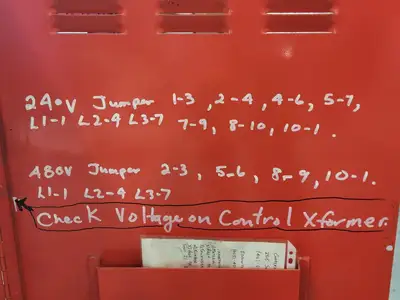 240V Jumper 1-3, 2-4, 4-6, 5-7,
L1-1 L2-4 L3-7 7-9, 8-10, 10-1.
480V Jumper 2-3, 5-6, 8-9, 10-1.
L1-1 L2-4 L3-7
Check Voltage on Control Xformer.